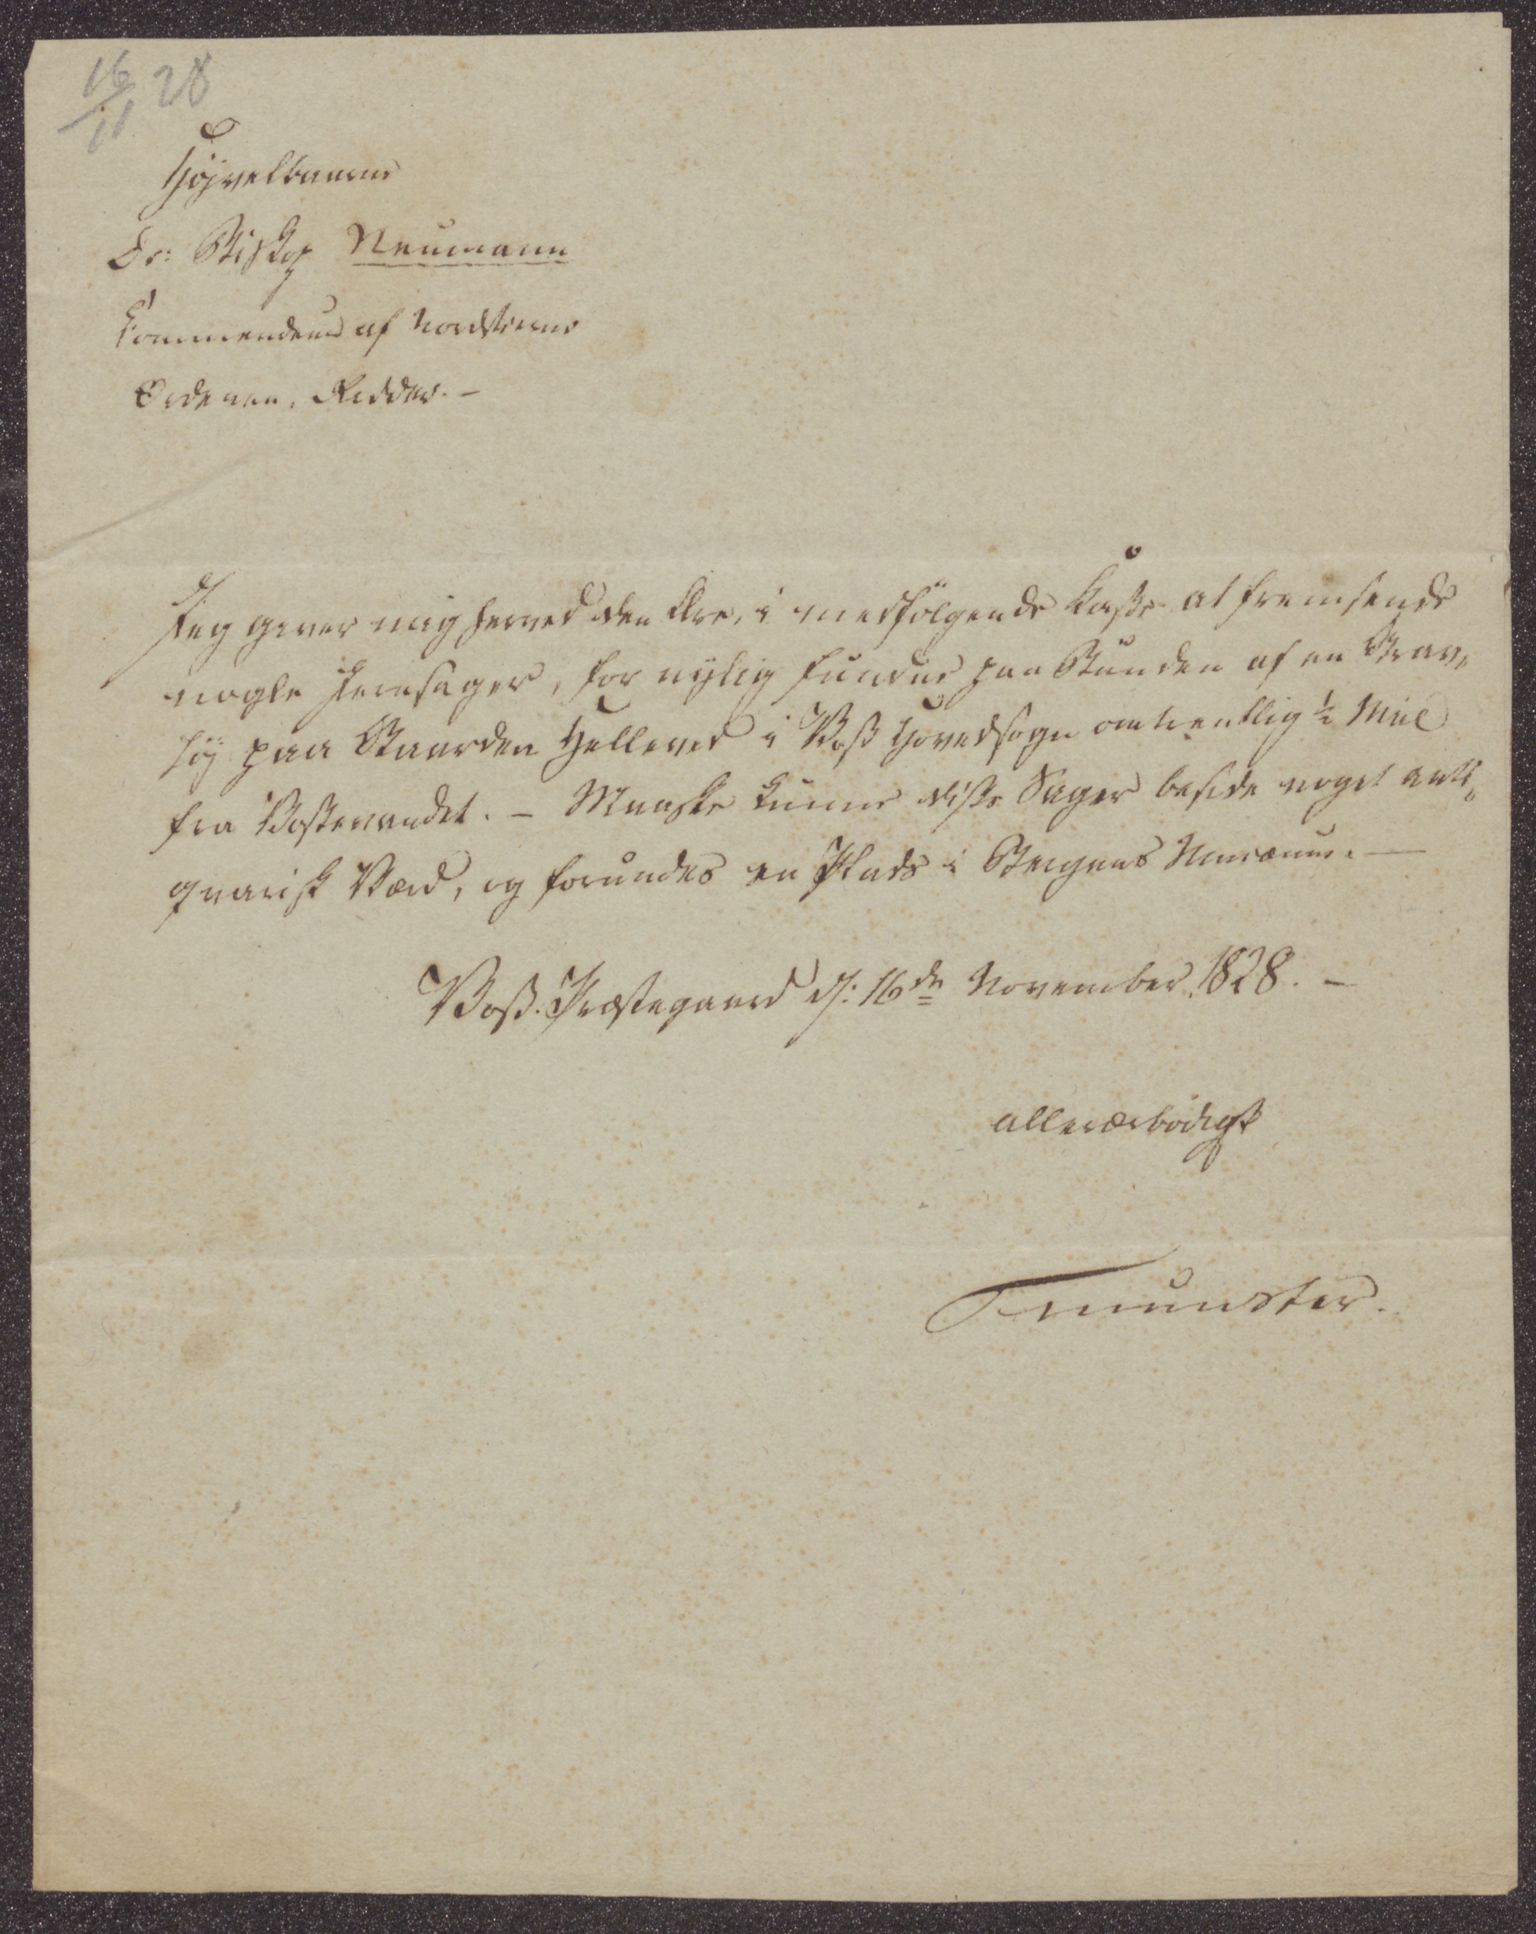 16/11 28
Højvelbaarne
Hr: Biskop Neumann
Kommendeur af Nordstierne
Ordenen, Ridder. –
Jeg giver mig herved den Ære, i medfølgende Kasse at fremsende
nogle Jernsager, for nylig fundne paa Bunden af en Grav-
høj paa Gaarden Helleved i Voss Hovedsogn omtrentlig ½ Miil
fra Vossevandet. – Maaske kunne disse Sager beside noget anti-
qvarisk Værd, og forundes en Plads i Bergens Musæum. –
Voss. Præstegaard d: 16de November 1828. –
allerærbødigst
Munster.